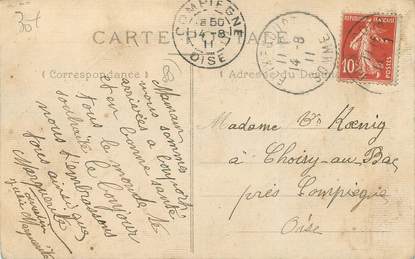 30f
COMPIEGNE
8 50
14-8
11
OISE
CARTE POSTALE
14-8
11
SOMME
REPUBLIQUE FRANÇAISE
10c
POSTES
(Correspondance)
Adresse du
Maman
nous sommes
arrivées à
et en bonne santé
tous le monde te
souhaite le bonjour
nous t'embrassons
tous ainsi que
Marguerite
Madame Vve Kœnig
à Choisy-au-Bac
près Compiègne
Oise